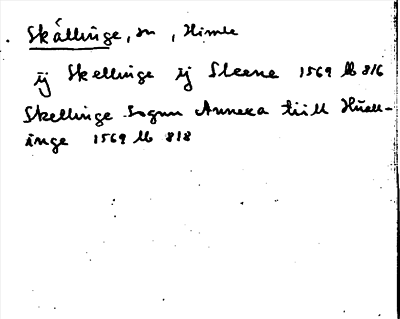 Skällinge, sn, Himle
ij Skellinge ij Steene 1569 lb 816
Skellinge sognn Annexa tiill Huall-
inge 1569 lb 818